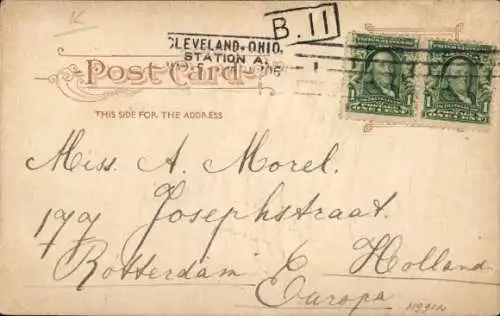 K
B. 11
CLEVELAND, OHIO,
STATION A.
POST CARD
THIS SIDE FOR THE ADDRESS
1 1
1 1
Miss. A. Morel.
177 Josephstraat.
Rotterdam Holland
Europa